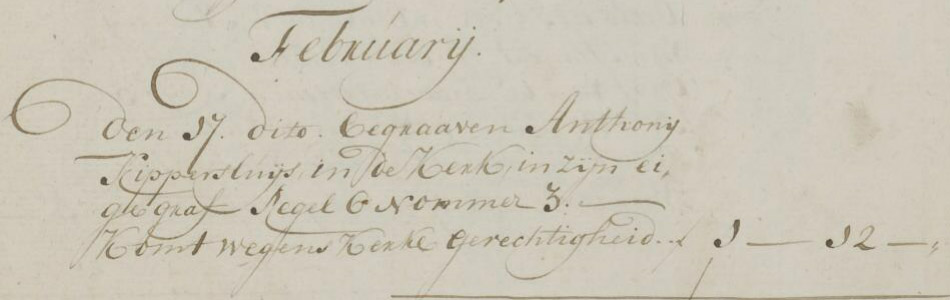 Februarij.
Den 17. dito. begraaven Anthonij
Kippersluijs, in de Kerk, in zijn ei,
ge graf Regel 6 Nommer 3. —
Komt wegens Kerke Gerechtigheid.. f 1 — 12 — „